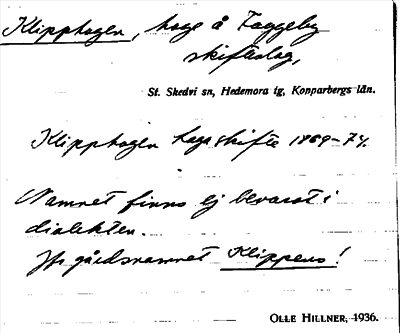 Klipphagen, hage å Faggeby
skifteslag,
St. Skedvi sn, Hedemora tg, Kopparbergs län.
Klipphagen laga skifte 1869–74.
Namnet finns ej bevarat i
dialekten.
Jfr gårdsnamnet Klippens!
OLLE HILLNER, 1936.